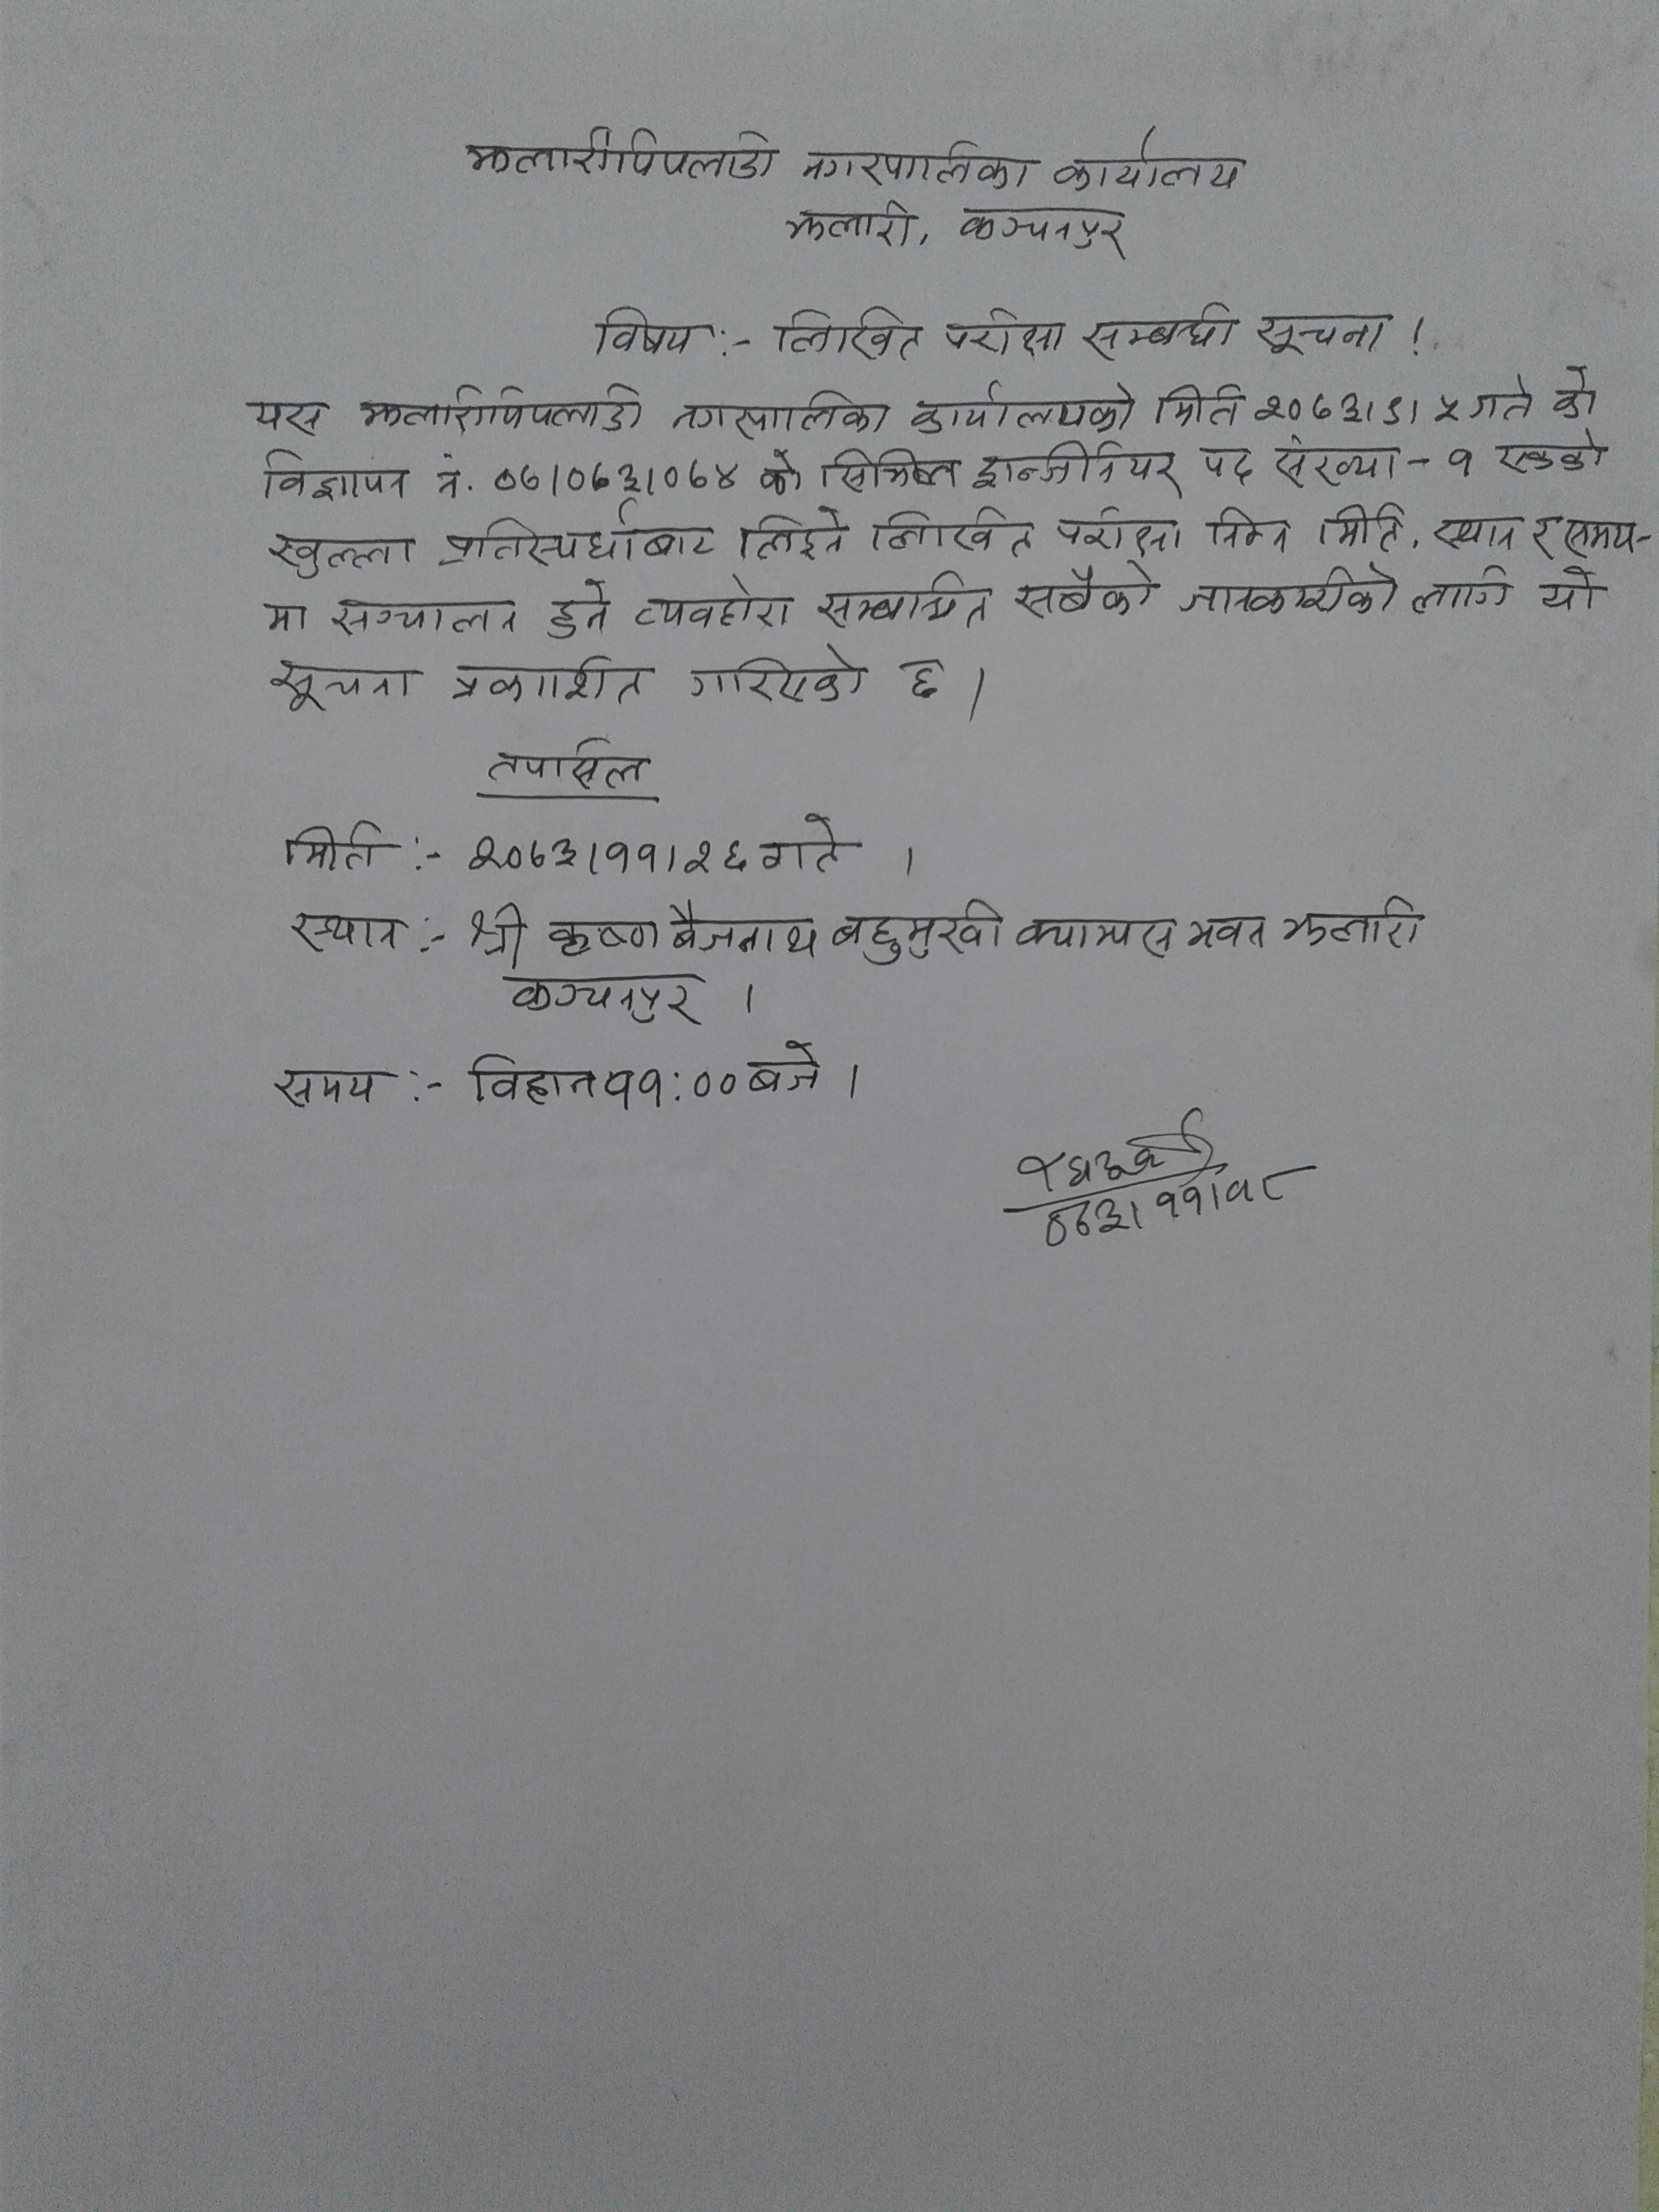 झलारीपिपलाडी नगरपालिका कार्यालय
झलारी, कञ्चनपुर
विषय :- लिखित परीक्षा सम्बन्धी सूचना !
यस झलारीपिपलाडी नगरपालिका कार्यालयको मिति २०७३।९।५ गते को
विज्ञापन नं. ०७।०७३।०७४ को सिभिल इन्जीनियर पद संख्या - १ एकको
खुल्ला प्रतिस्पर्धाबाट लिइने लिखित परीक्षा निम्न मिति, स्थान र समय-
मा सञ्चालन हुने व्यवहोरा सम्बन्धित सबैको जानकारीको लागि यो
सूचना प्रकाशित गरिएको छ ।
तपसिल
मिति :- २०७३।११।२६ गते ।
स्थान :- श्री कृष्ण बैजनाथ बहुमुखी क्याम्पस भवन झलारी
कञ्चनपुर ।
समय :- विहान ११:०० बजे ।
०७३।११।१८